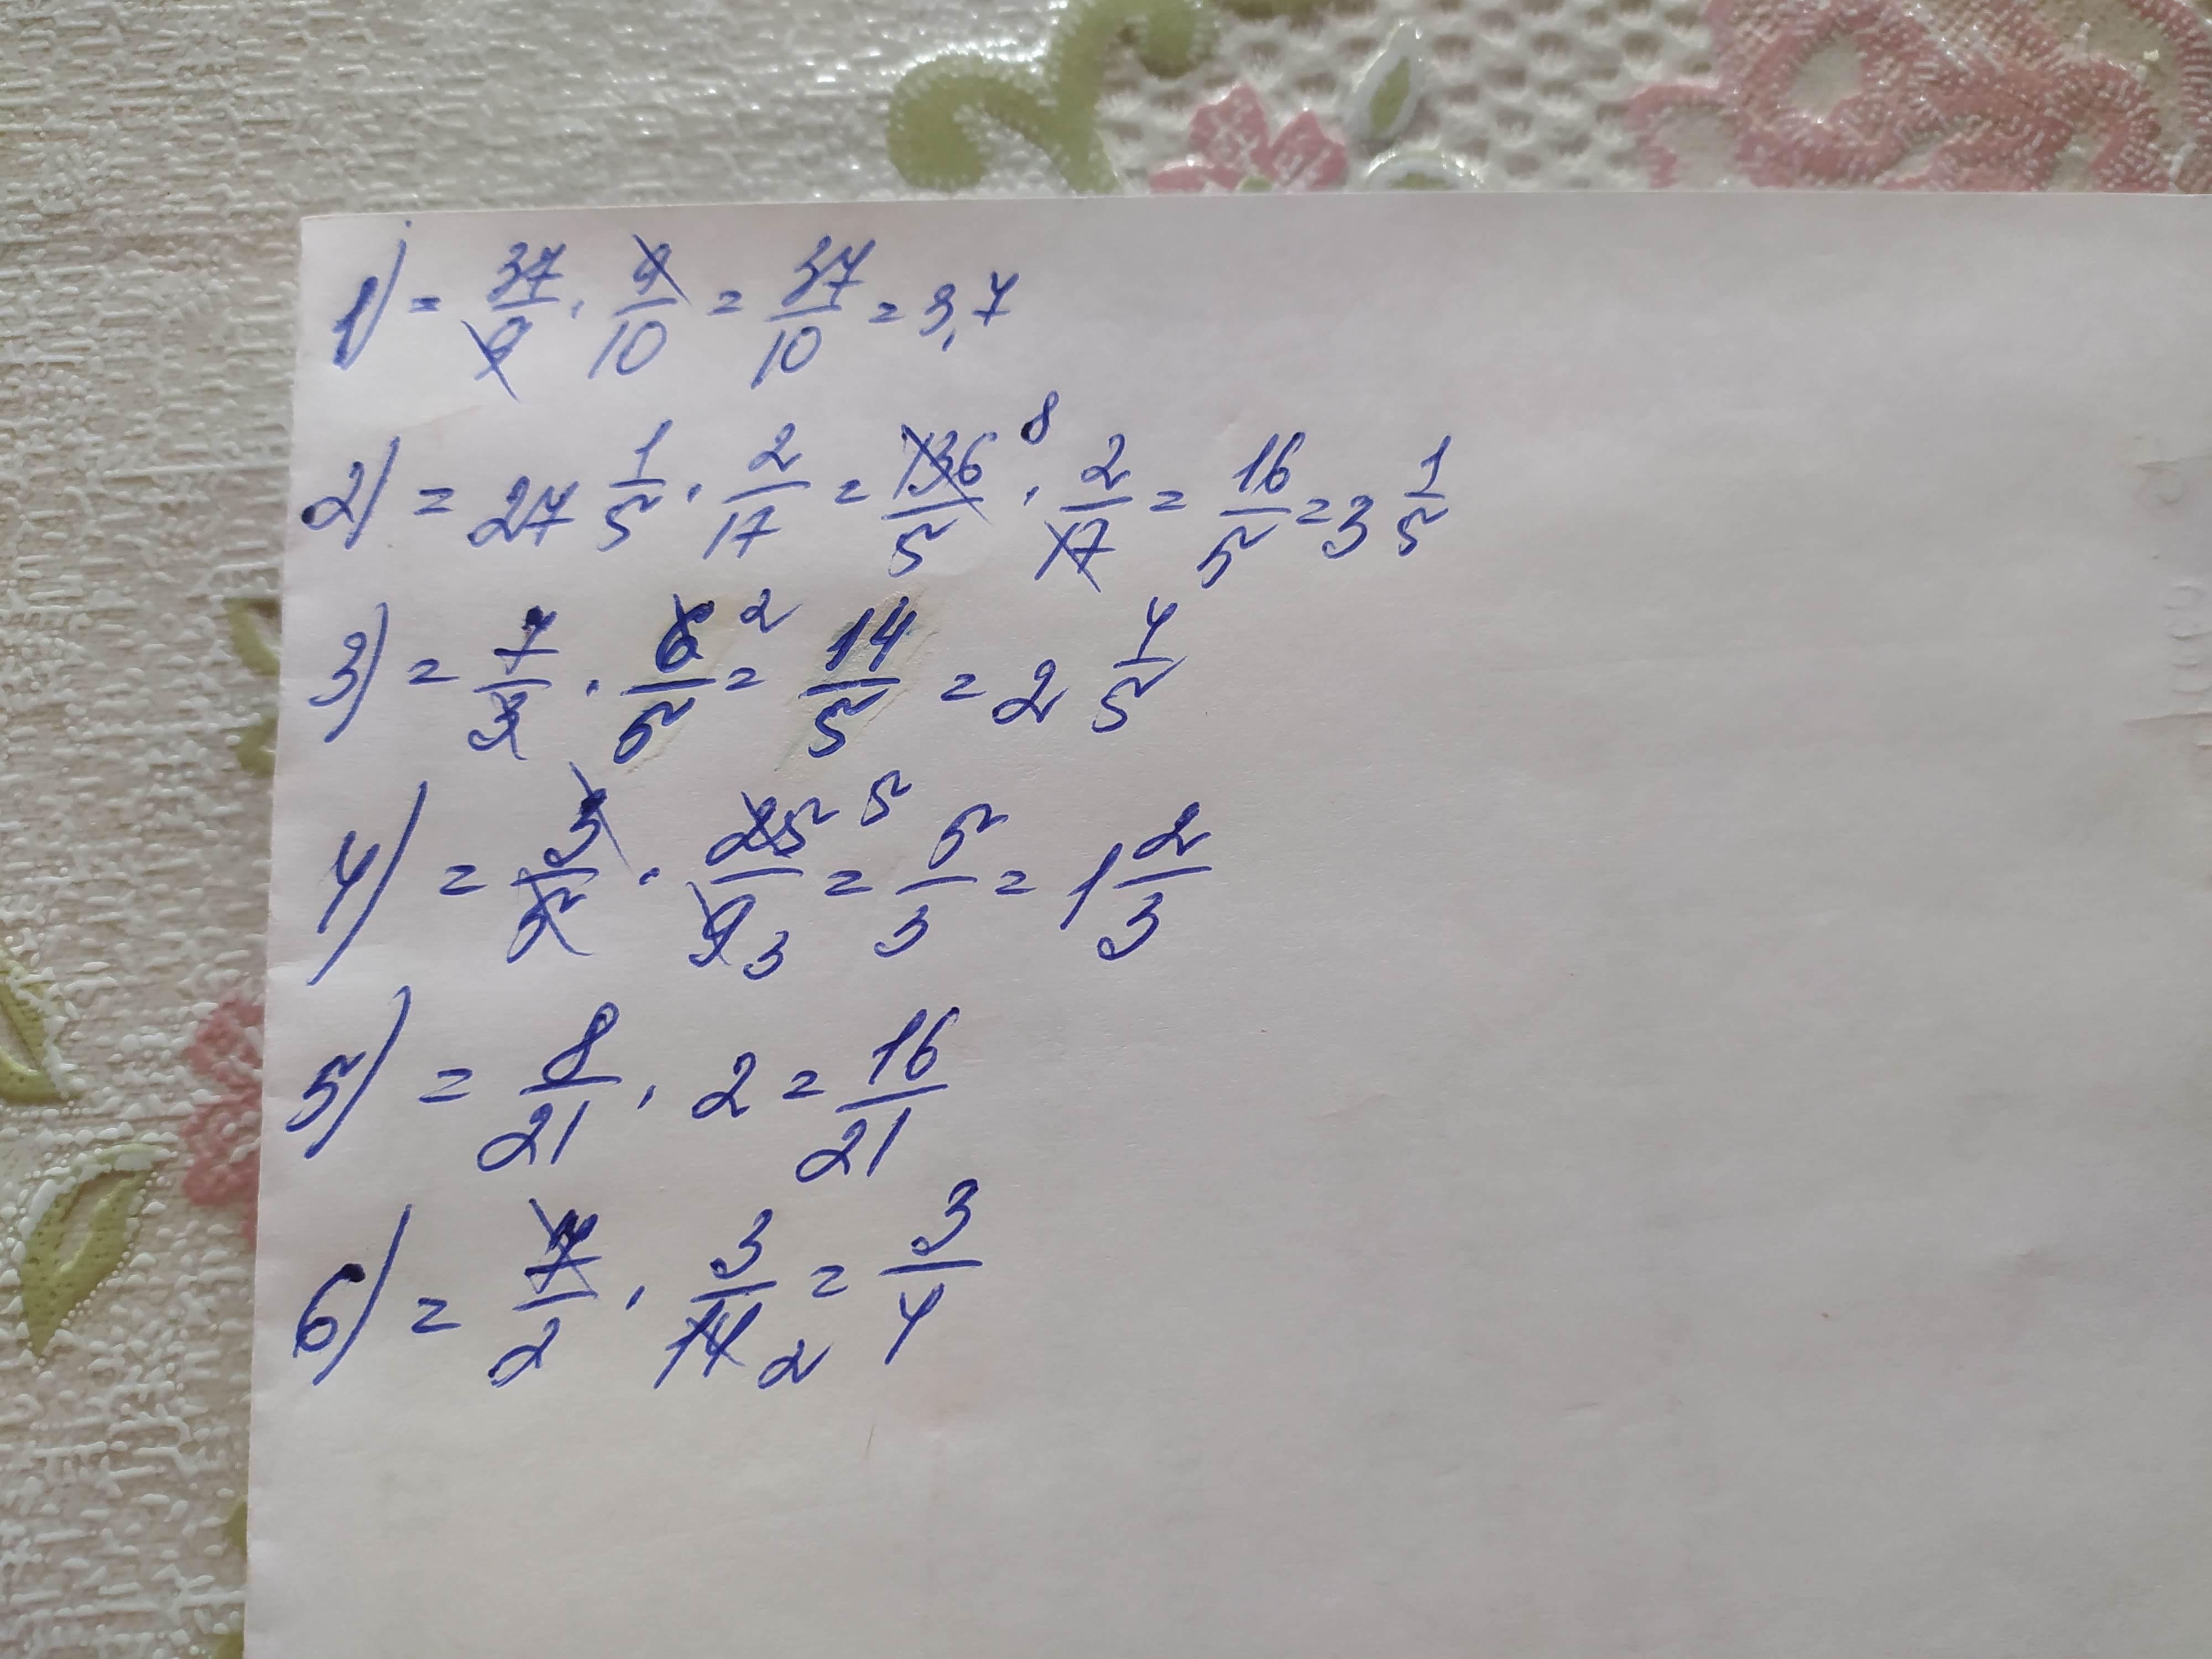 1) = 37/9 · 9/10 = 37/10 = 3,7
2) = 27 1/5 · 2/17 = 136/5 8 · 2/17 = 16/5 = 3 1/5
3) = 7/3 · 6/5 2 = 14/5 = 2 4/5
4) = 3/5 · 25/9 5 3 = 5/3 = 1 2/3
5) = 8/21 · 2 = 16/21
6) = 7/2 · 3/14 2 = 3/4